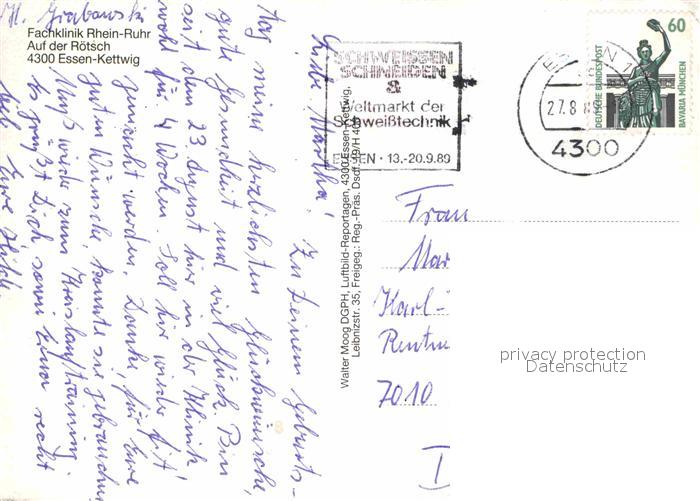 Fachklinik Rhein-Ruhr
Auf der Rötsch
4300 Essen-Kettwig
Liebe Martha! Zu Deinem Geburts-
tag meine herzlichsten Glückwünsche,
gute Gesundheit und viel Glück. Bin
seit dem 23 August hier in der Klinik
wohl für 4 Wochen. Soll hier wieder fit
gemacht werden. Danke für Eure
guten Wünsche, konnte sie gebrauchen.
Muß wieder zum Kreislauftraining
Es grüßt Dich sowie Euch recht
lieb Eure
Walter Moog DGPH, Luftbild-Reportagen, 4300 Essen-Kettwig,
Leibnizstr. 35, Freigeg.: Reg.-Präs. Dsdf. 19/H 40
SCHWEISSEN
SCHNEIDEN
&
Weltmarkt der
Schweißtechnik
ESSEN · 13.-20.9.89
ESSEN 1
27.8.8
4300
60
DEUTSCHE BUNDESPOST
BAVARIA MÜNCHEN
Frau
Mar
Karl-
Rentne
7010
privacy protection
Datenschutz